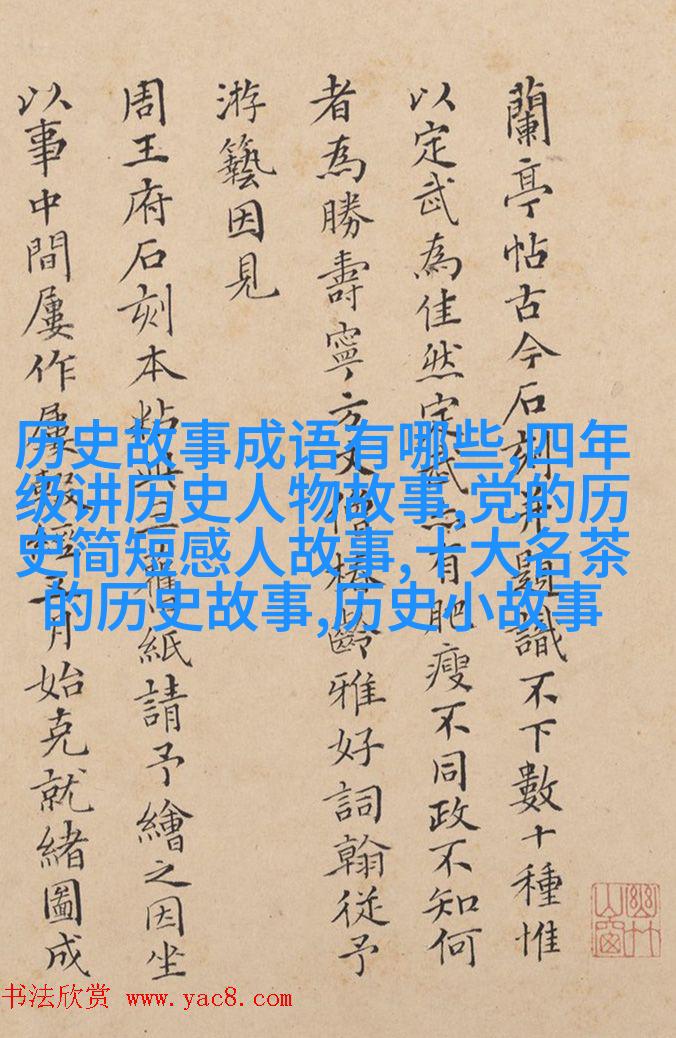 蘭亭帖古今石刻并識不下數十種惟
以定武為佳然定武有肥瘦不同政不知何
者為勝壽寧方丈僧椿齡雅好詞翰從予
游藝因見
周王府石刻本粘舊紙請予繪之因坐
以事中間屢作屢輟月始克就緒圖成
历史故事成语有哪些,四年
级讲历史人物故事,党的历
史简短感人故事,十大名茶
的历史故事,历史小故事
幽竹
山窗
书法欣赏 www.yac8.com